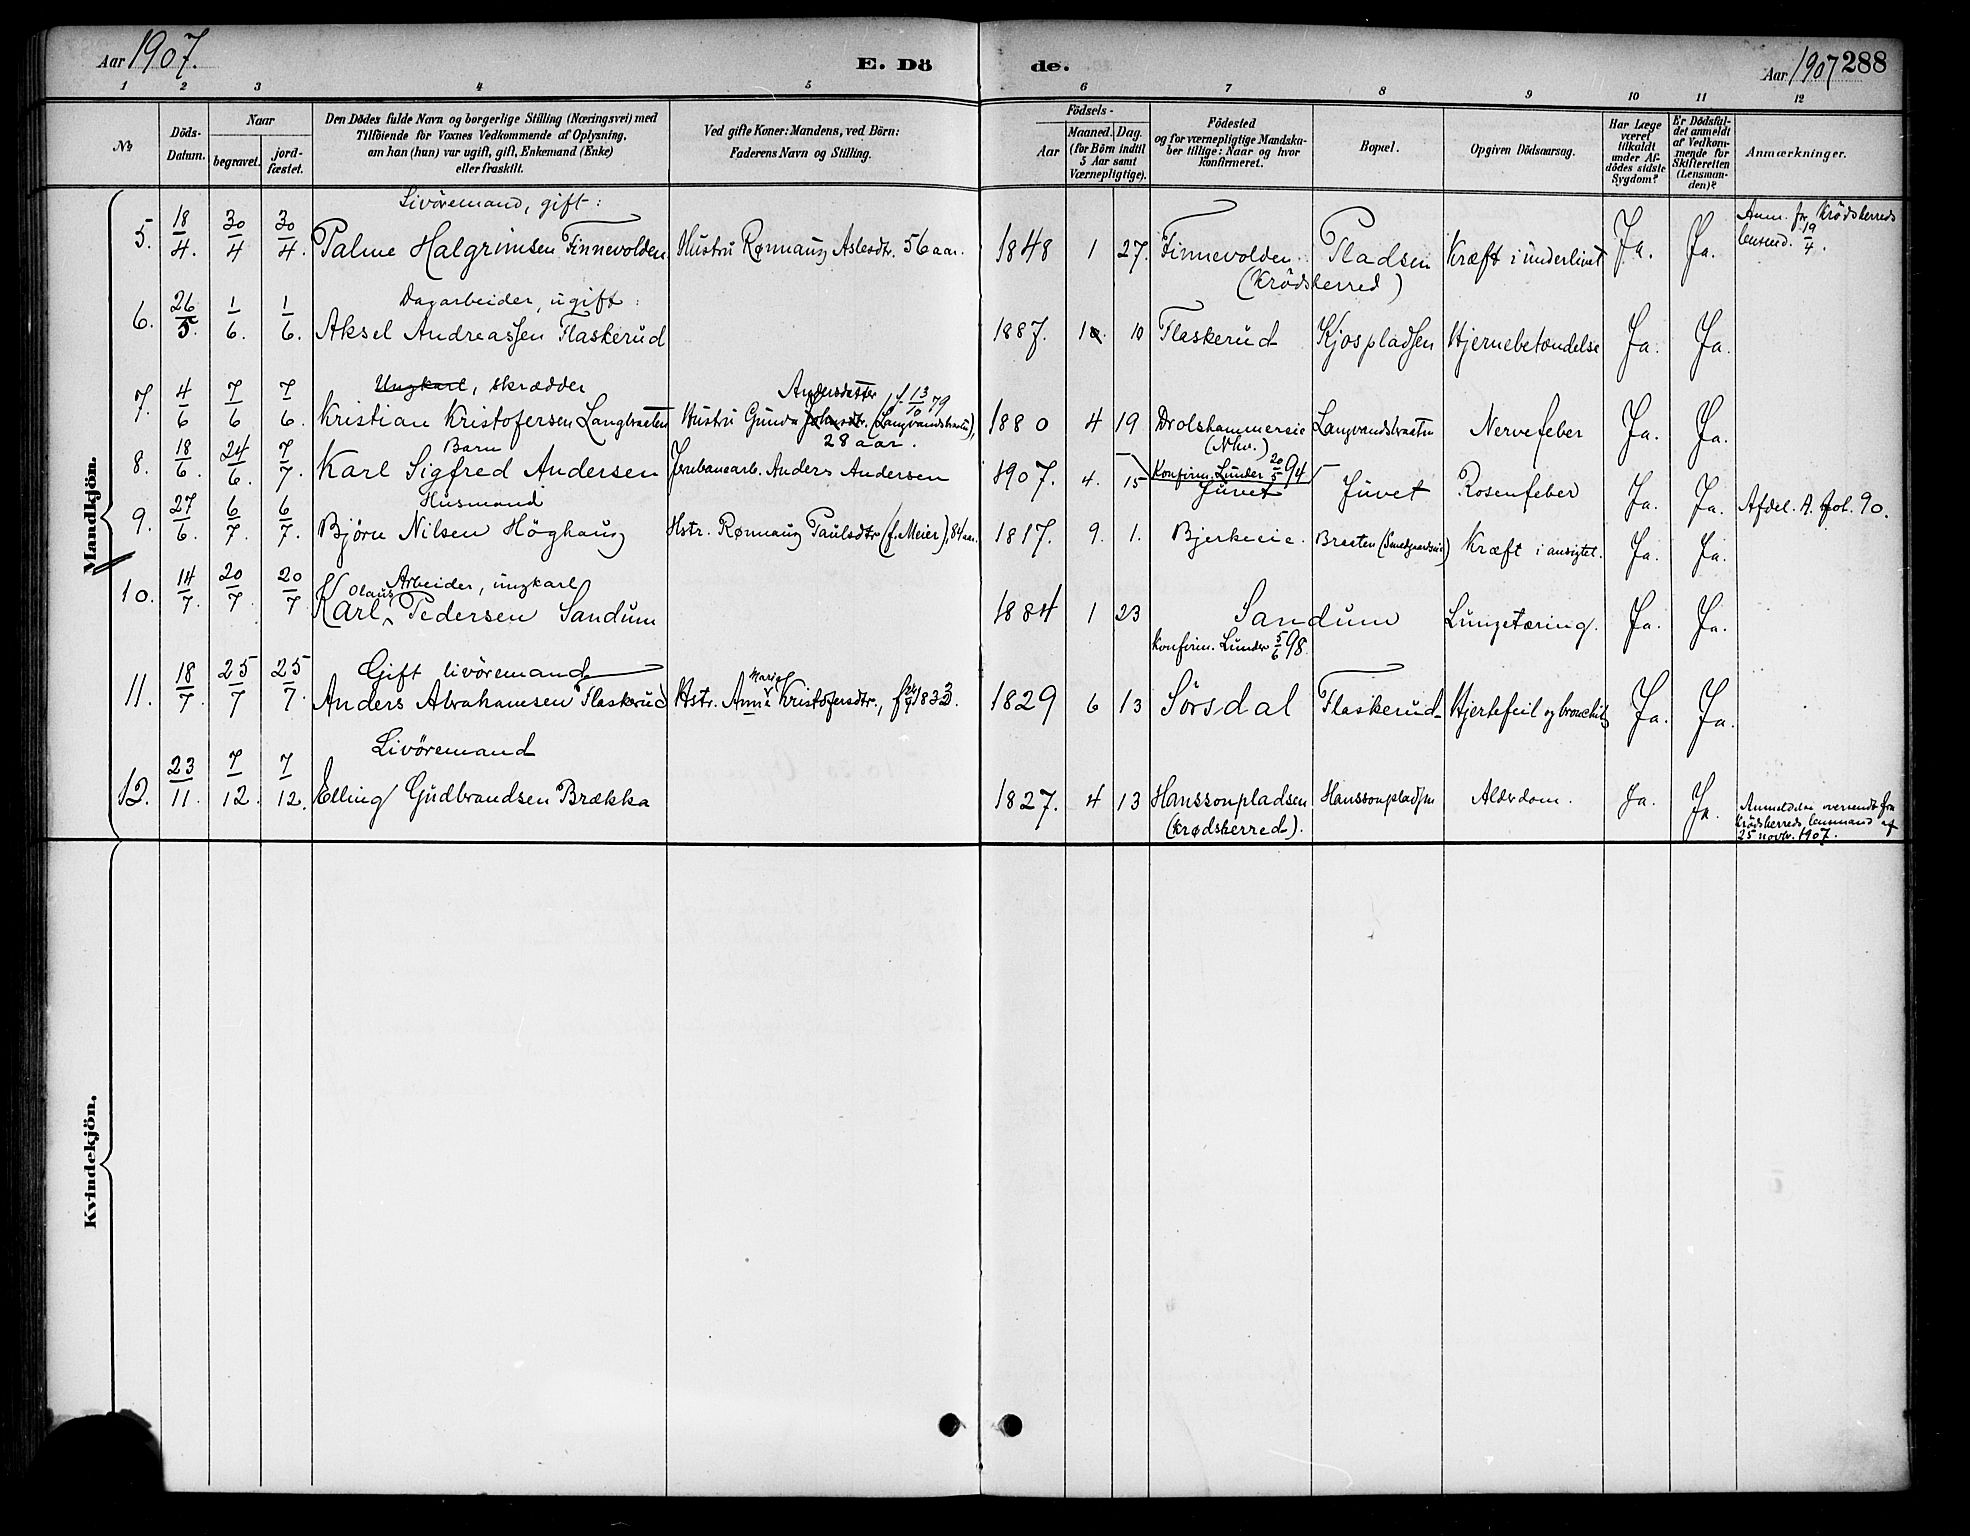 Aar 1907.
E. Dö
de.
Aar 1907 288
1 2 3 4 5 6 7 8 9 10 11 12
№
Döds-Datum.
Naar
begravet.
jord-fæstet.
Den Dödes fulde Navn og borgerlige Stilling (Næringsvei) med
Tilföiende for Voxnes Vedkommende af Oplysning,
om han (hun) var ugift, gift, Enkemand (Enke)
eller fraskilt.
Ved gifte Koner: Mandens, ved Börn:
Faderens Navn og Stilling.
Födsels-
Aar
Maaned. Dag.
(for Börn indtil
5 Aar samt
Værnepligtige).
Födested
og for værnepligtige Mandska-
ber tillige: Naar og hvor
konfirmeret.
Bopæl.
Opgiven Dödsaarsag.
Har Læge
været
tilkaldt
under Af-
dödes sidste
Sygdom?
Er Dödsfal-
det anmeldt
af Vedkom-
mende for
Skifteretten
(Lensman-
den)?
Anmærkninger.
Mandkjön.
Livöremand, gift:
5. 18/4. 30/4 30/4. Palme Halgrimsen Finnevolden Hustru Rønnaug Aslesdtr. 56 aar. 1848 1 27. Finnevolden (Krödsherred) Pladsen Kræft i underlivet Ja. Ja. Anm. fr. Krödsherreds lensmd. 19/4.
Dagarbeider, ugift:
6. 26/5. 1/6. 1/6. Aksel Andreassen Flaskerud 1887. 10 Flaskerud Kjospladsen Hjernebetændelse Ja. Ja.
Ungkarl, skrædder
7. 4/6 7/6 7/6. Kristian Kristofersen Langbraaten Hustru Gunda Johnsdtr. Andersdatter, f. 13/10 79 (Langvandsbraaten), 28 aar. 1880 4 19 Drolshammereie (Nhv.) Langvandsbraaten Nervefeber Ja. Ja.
Konfirm. Lunder 20/5 94
Barn
8. 18/6. 24/6. 7/7. Karl Sigfred Andersen Jernbanearb. Anders Andersen 1907. 4. 15 Juvet Juvet Rosenfeber Ja. Ja. Afdel. A. fol. 90.
Husmand
9. 27/6. 6/7. 6/7. Björn Nilsen Höghaug Hstr. Rønnaug Paulsdtr (f. Meier), 84 aar. 1817. 9. 1. Bjerkeeie. Braaten (Smedgaardseie) Kræft i ansigtet. Ja. Ja.
Arbeider, ungkarl
10. 14/7. 20/7. 20/7 Karl Olaus Pedersen Sandum 1884 1 23 Sandum Lungetæring. Ja. Ja.
Konfirm. Lunder 5/6 98.
Gift livöremand
11. 18/7. 25/7 25/7. Anders Abrahamsen Flaskerud Hstr. Anne Marie Kristofersdtr., 1833. 1829 6 13 Sörsdal Flaskerud Hjertefeil og bronchitis Ja. Ja.
Livöremand
12. 23/11. 7/12. 7/12. Elling Gudbrandsen Brækka 1827. 4 13 Hanssonpladsen (Krødsherred). Hanssonpladsen Alderdom. Ja. Ja. Anmeldelse oversendt fra Krödsherreds lensmand af 25 novbr. 1907.
Kvindekjön.